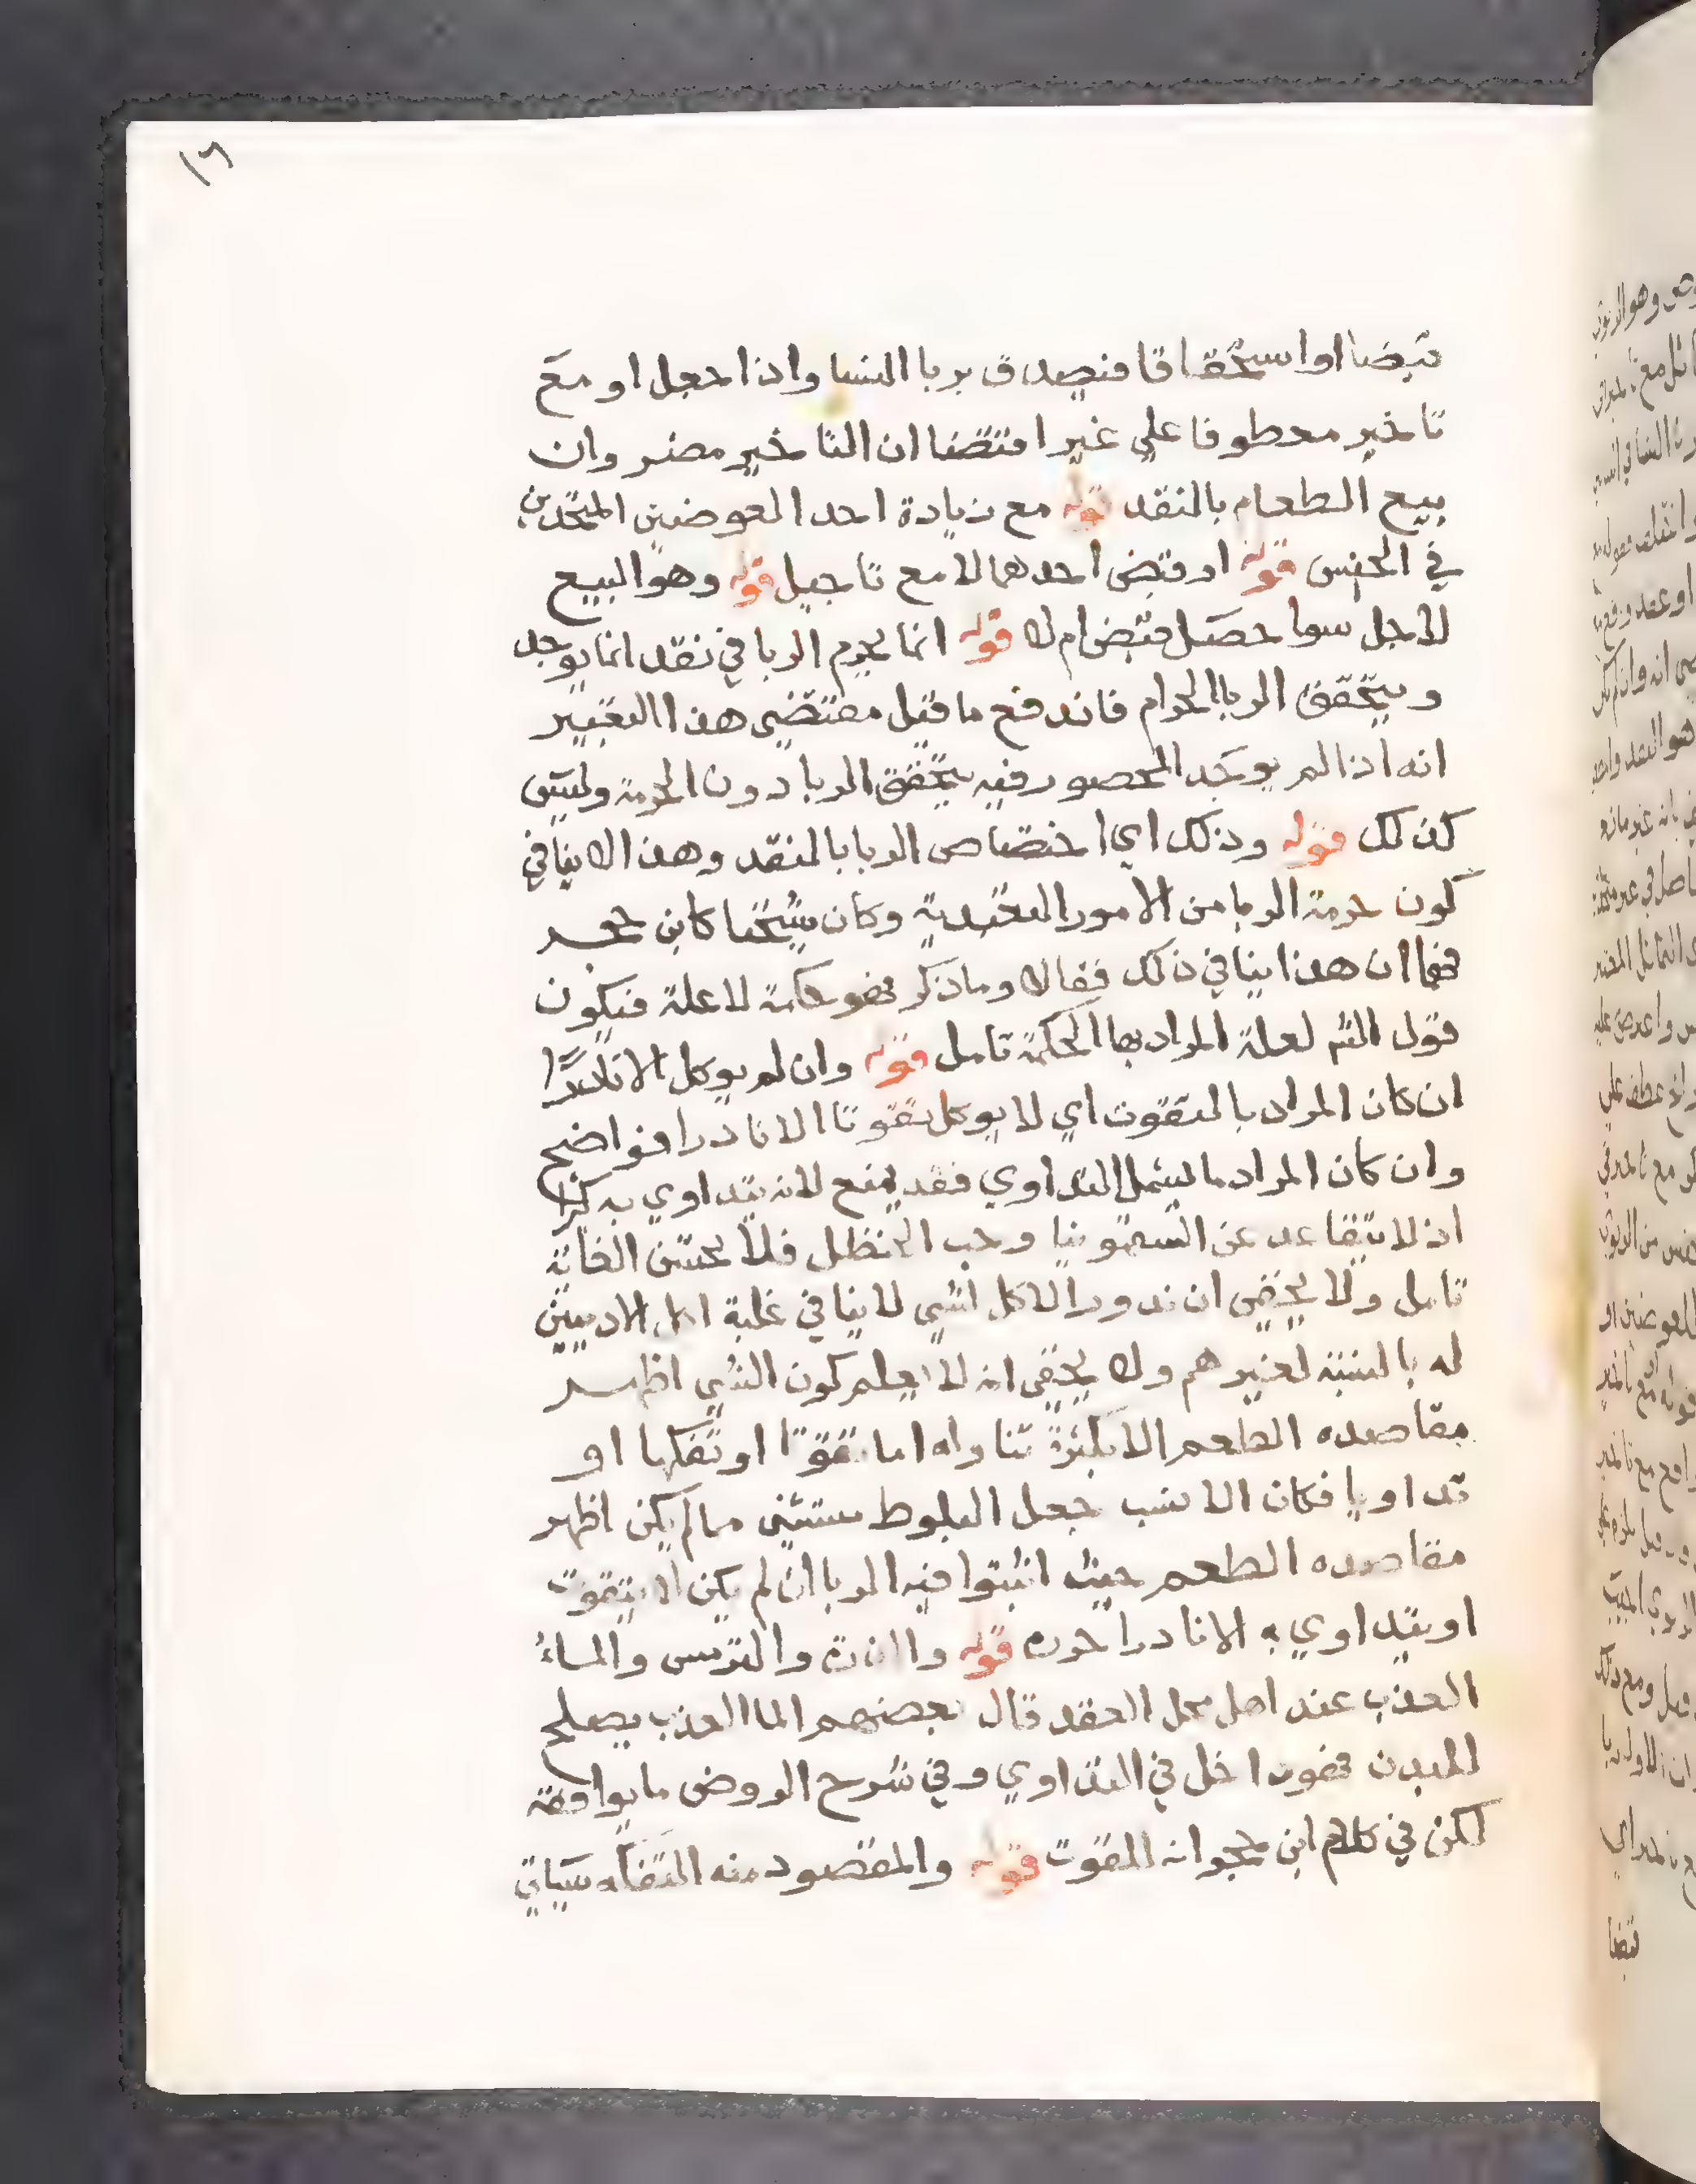 ١٦
قبضا او استحقاقا فنصدق بربا النسا واذا جعل او مع
تاخير معطوفا علي غير اقتضا ان التاخير مضر وان
بيع الطعام بالنقد قوله مع زيادة احد العوضين المتحدين
في الجنس قوله او قبض احدهما لا مع تاجيل قوله وهو البيع
لاجل سوا حصل قبض ام لا قوله انما يحرم الربا في نقد انما يوجد
ويتحقق الربا الحرام فاندفع ما قيل مقتضي هذا التعبير
انه اذا لم يوجد المحصور فيه يتحقق الربا دون الحرمة وليس
كذلك قوله وذلك اي اختصاص الربا بالنقد وهذا لا ينافي
كون حرمة الربا من الامور التعبدية وكان شيخنا كابن حجر
فهما ان هذا ينافي ذلك فقالا وما ذكر فهو حكمة لا علة فيكون
قول الشم لعلة المراد بها الحكمة تامل قوله وان لم يوكل الا نادرا
ان كان المراد بالتقوت اي لا يوكل تقوتا الا نادرا فواضح
وان كان المراد ما يشمل التداوي فقد يمنع لانه يتداوي به كثيرا
اذ لا يتقاعد عن السقمونيا وحب الحنظل فلا تحسن الغاية
تامل ولا يخفي ان ندور الاكل لشي لا ينافي غلبة اكل الادميين
له بالنسبة لغيرهم ولا يخفي انه لا يعلم كون الشي اظهر
مقاصده الطعم الا بكثرة تناوله اما تقوتا او تفكها او
تداويا فكان الانسب جعل البلوط مستثني مما لم يكن اظهر
مقاصده الطعم حيث اثبتوا فيه الربا ان لم يكن لا يتقوت
او يتداوي به الا نادرا حرره قوله والذرة والترمس والماء
العذب عند اهل محل العقد قال بعضهم الما العذب يصلح
البدن فهو داخل في التداوي وفي شرح الروض ما يوافقه
لكن في كلام ابن حجر انه للقوت قوله والمقصود منه التفكه سياتي